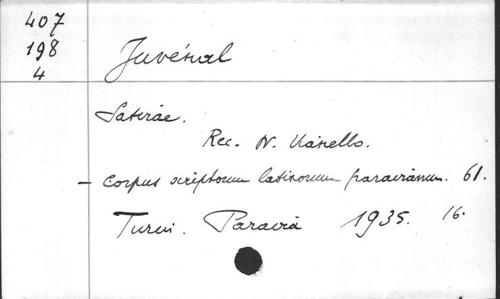 407
198
4
Juvénal
Satirae.
Rec. N. Vianello.
- Corpus scriptorum latinorum paravianum. 61.
Turin. Paravia 1935. 16.